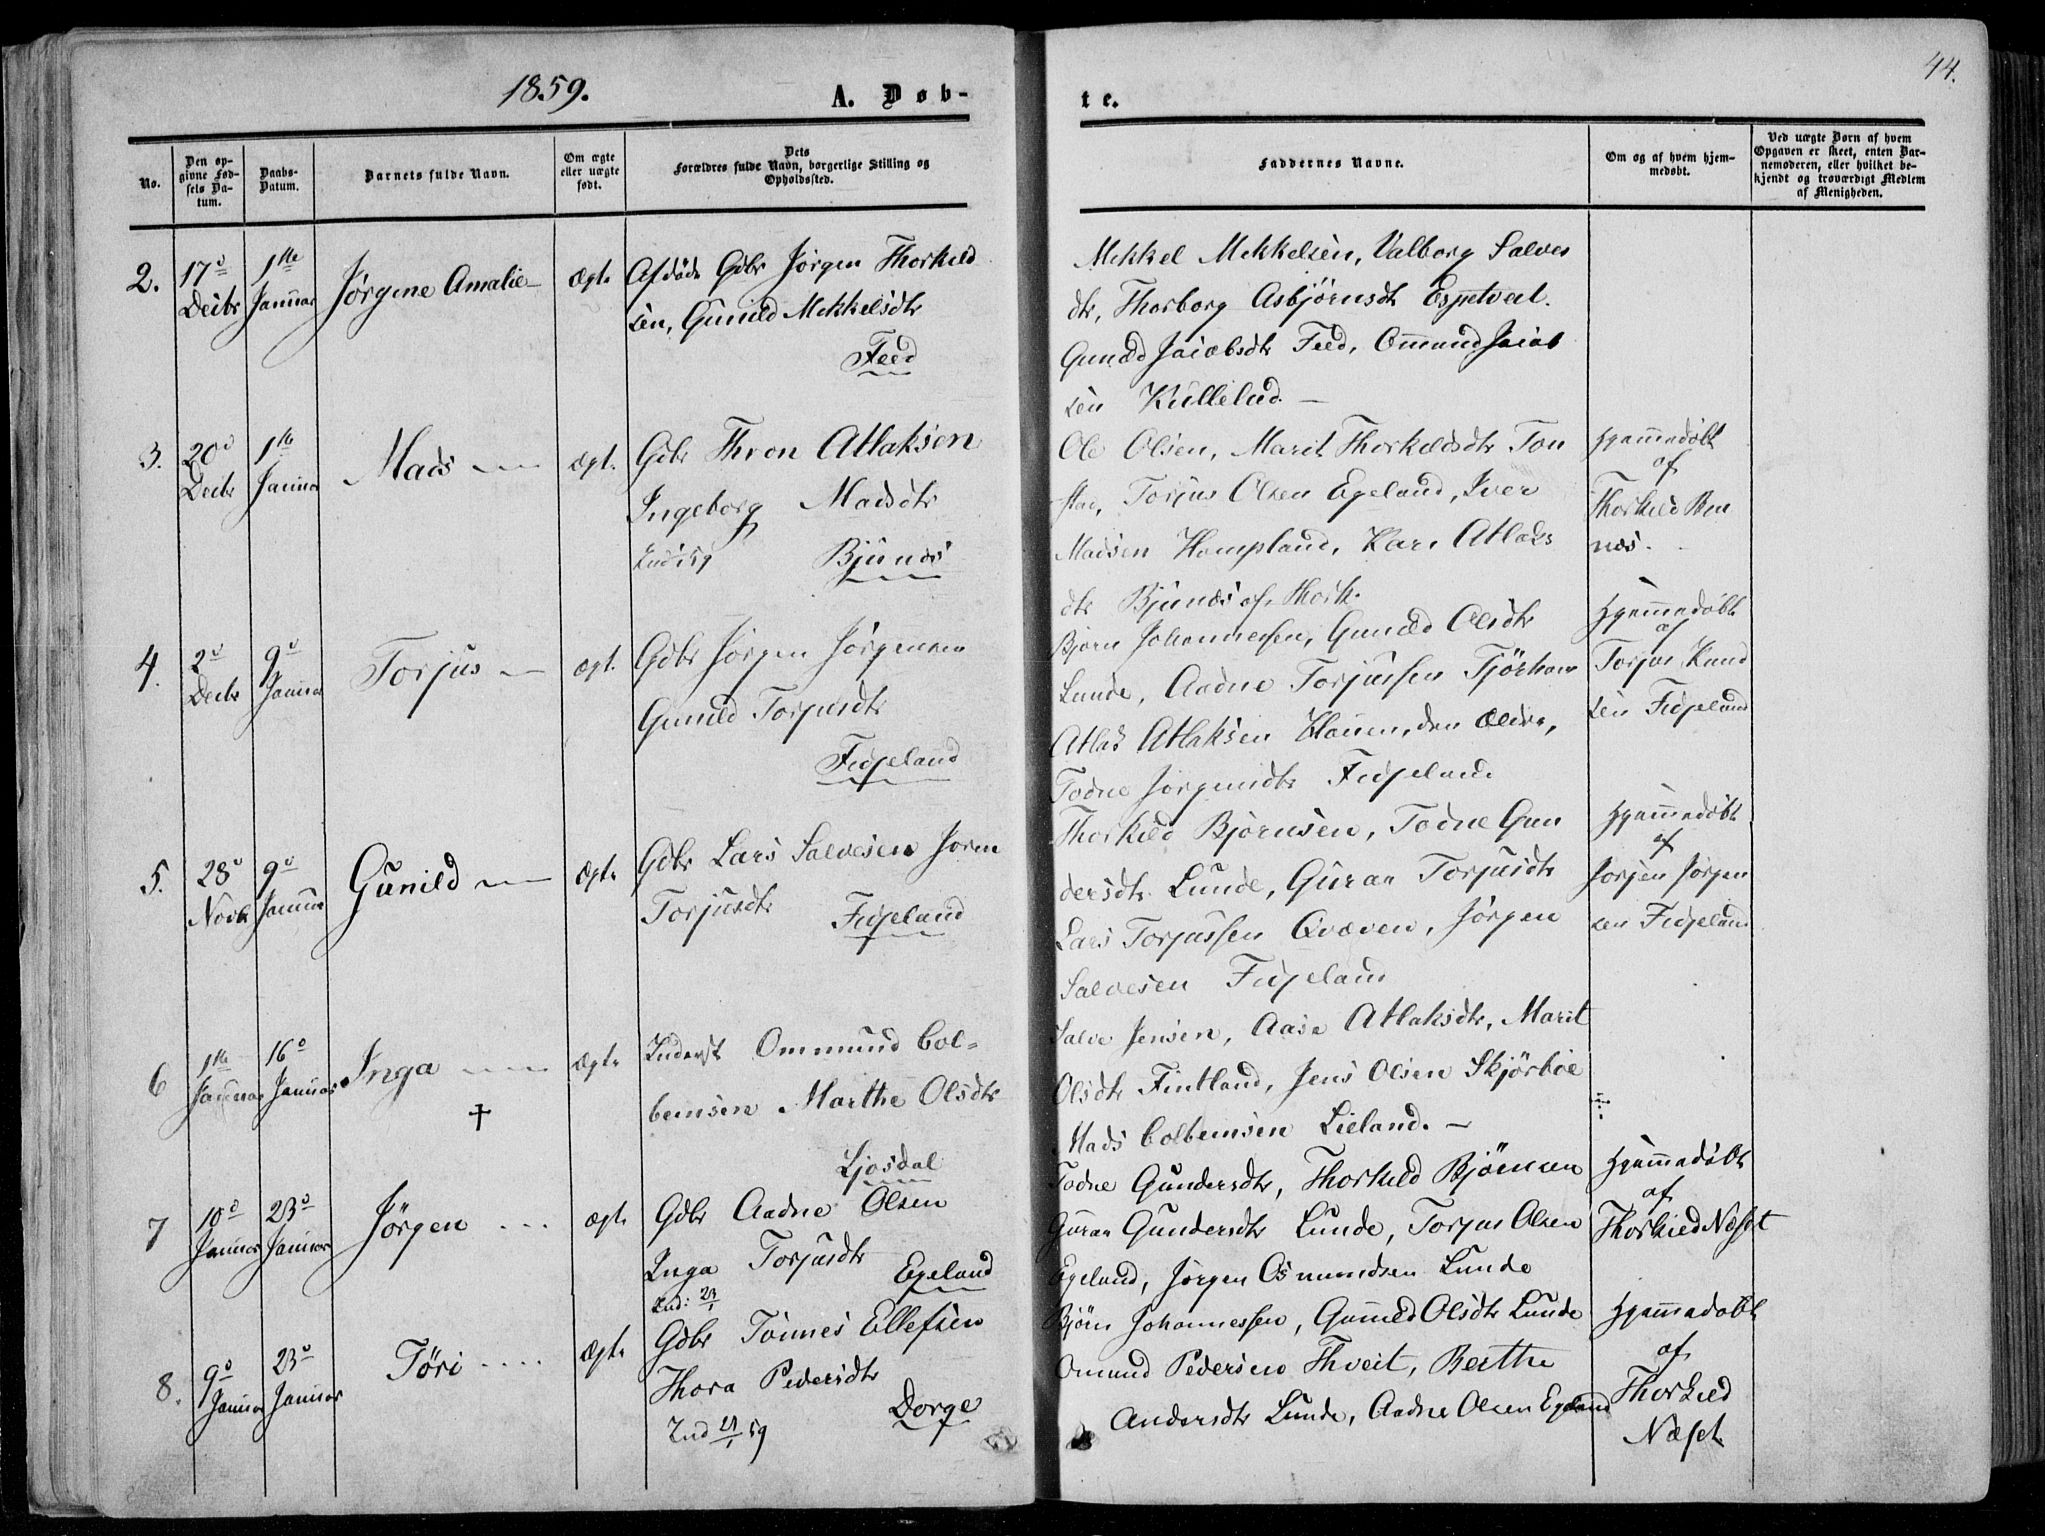 1859.
A. Døb-
te.
44.
No.
Den op-
givne Fød-
sels Da-
tum.
Daabs-
Datum.
Barnets fulde Navn.
Om ægte
eller uægte
født.
Dets
Forældres fulde Navn, borgerlige Stilling og
Opholdssted.
Faddernes Navne.
Om og af hvem hjem-
medøbt.
Ved uægte Børn af hvem
Opgaven er skeet, enten Bar-
nemoderen, eller hvilket be-
kjendt og troværdigt Medlem
af Menigheden.
2.
17d
Decbr
1ste
Januar
Jørgine Amalie
ægte
Afdøde Gdbr Jørgen Thorkild
sen, Gunild Mikkelsdtr
Feed
Mikkel Mikkelsen, Valborg Salves
dtr, Thorborg Asbjørnsdtr Espetveit.
Gunild Jacobsdtr Feed, Ommund Jacob
sen
3.
20d
Decbr
1ste
Januar
Mads
ægt.
Gdbr Thron Atlaksen
Ingeborg Madsdtr
59
Bjunes
Ole Olsen, Marit Thorkildsdtr Ton
stad, Torjus Olsen Egeland, Iver
Madsen Hompland, Kari Atlaks
dtr Bjunes
Hjemmedøbt
af
Thorkild
4.
2d
Decbr
9d
Januar
Torjus
ægt.
Gdbr Jørgen Jørgensen
Gunild Torjusdtr
Fidjeland
Bjørn Johannessen, Gunild Olsdtr
Lunde, Aadne Torjussen Tjørhom
Atlak Atlaksen Haunen, den Ældre,
Todne Jørgensdtr Fidjeland
Hjemmedøbt
af
Torjus Knud
sen Fidjeland
5.
28d
Novbr
9d
Januar
Gunild
ægte
Gdbr Lars Salvesen
Torjusdtr
Fidjeland
Thorkild Bjørnsen, Todne Gun
dersdtr Lunde, Guran Torjusdtr
Lars Torjussen Qvæven, Jørgen
Salvesen Fidjeland
Hjemmedøbt
af
Jørgen Jørgen
sen Fidjeland
6
1ste
Januar
16d
Januar
Inga
†
ægte
Inderst Ommund Col-
bensen Marthe Olsdtr
Ljosdal
Salve Jensen, Aasa Atlaksdtr, Marit
Olsdtr Fintland, Jens Olsen Skjørbøe
Mads Colbensen Lieland.
7
10d
Januar
23d
Januar
Jörgen
ægte
Gdbr Aadne Olsen
Inga Torjusdtr
Ind:
Egeland
Todne Gundersdtr, Thorkild Bjørnsen
Guran Gundersdtr Lunde, Torjus Olsen
Egeland, Jørgen Osmundsen Lunde
Hjemmedøbt
af
Thorkild Næset
8.
9d
Januar
23d
Januar
Töri
ægte
Gdbr Tönnes Ellefsen
Thora Pedersdtr
59
Dorge
Bjørn Johannessen, Gunild Olsdtr Lunde
Omund Pedersen Thveit, Berthe
Andersdtr Lunde, Aadne Olsen Egeland
Hjemmedøbt
af
Thorkild
Næset